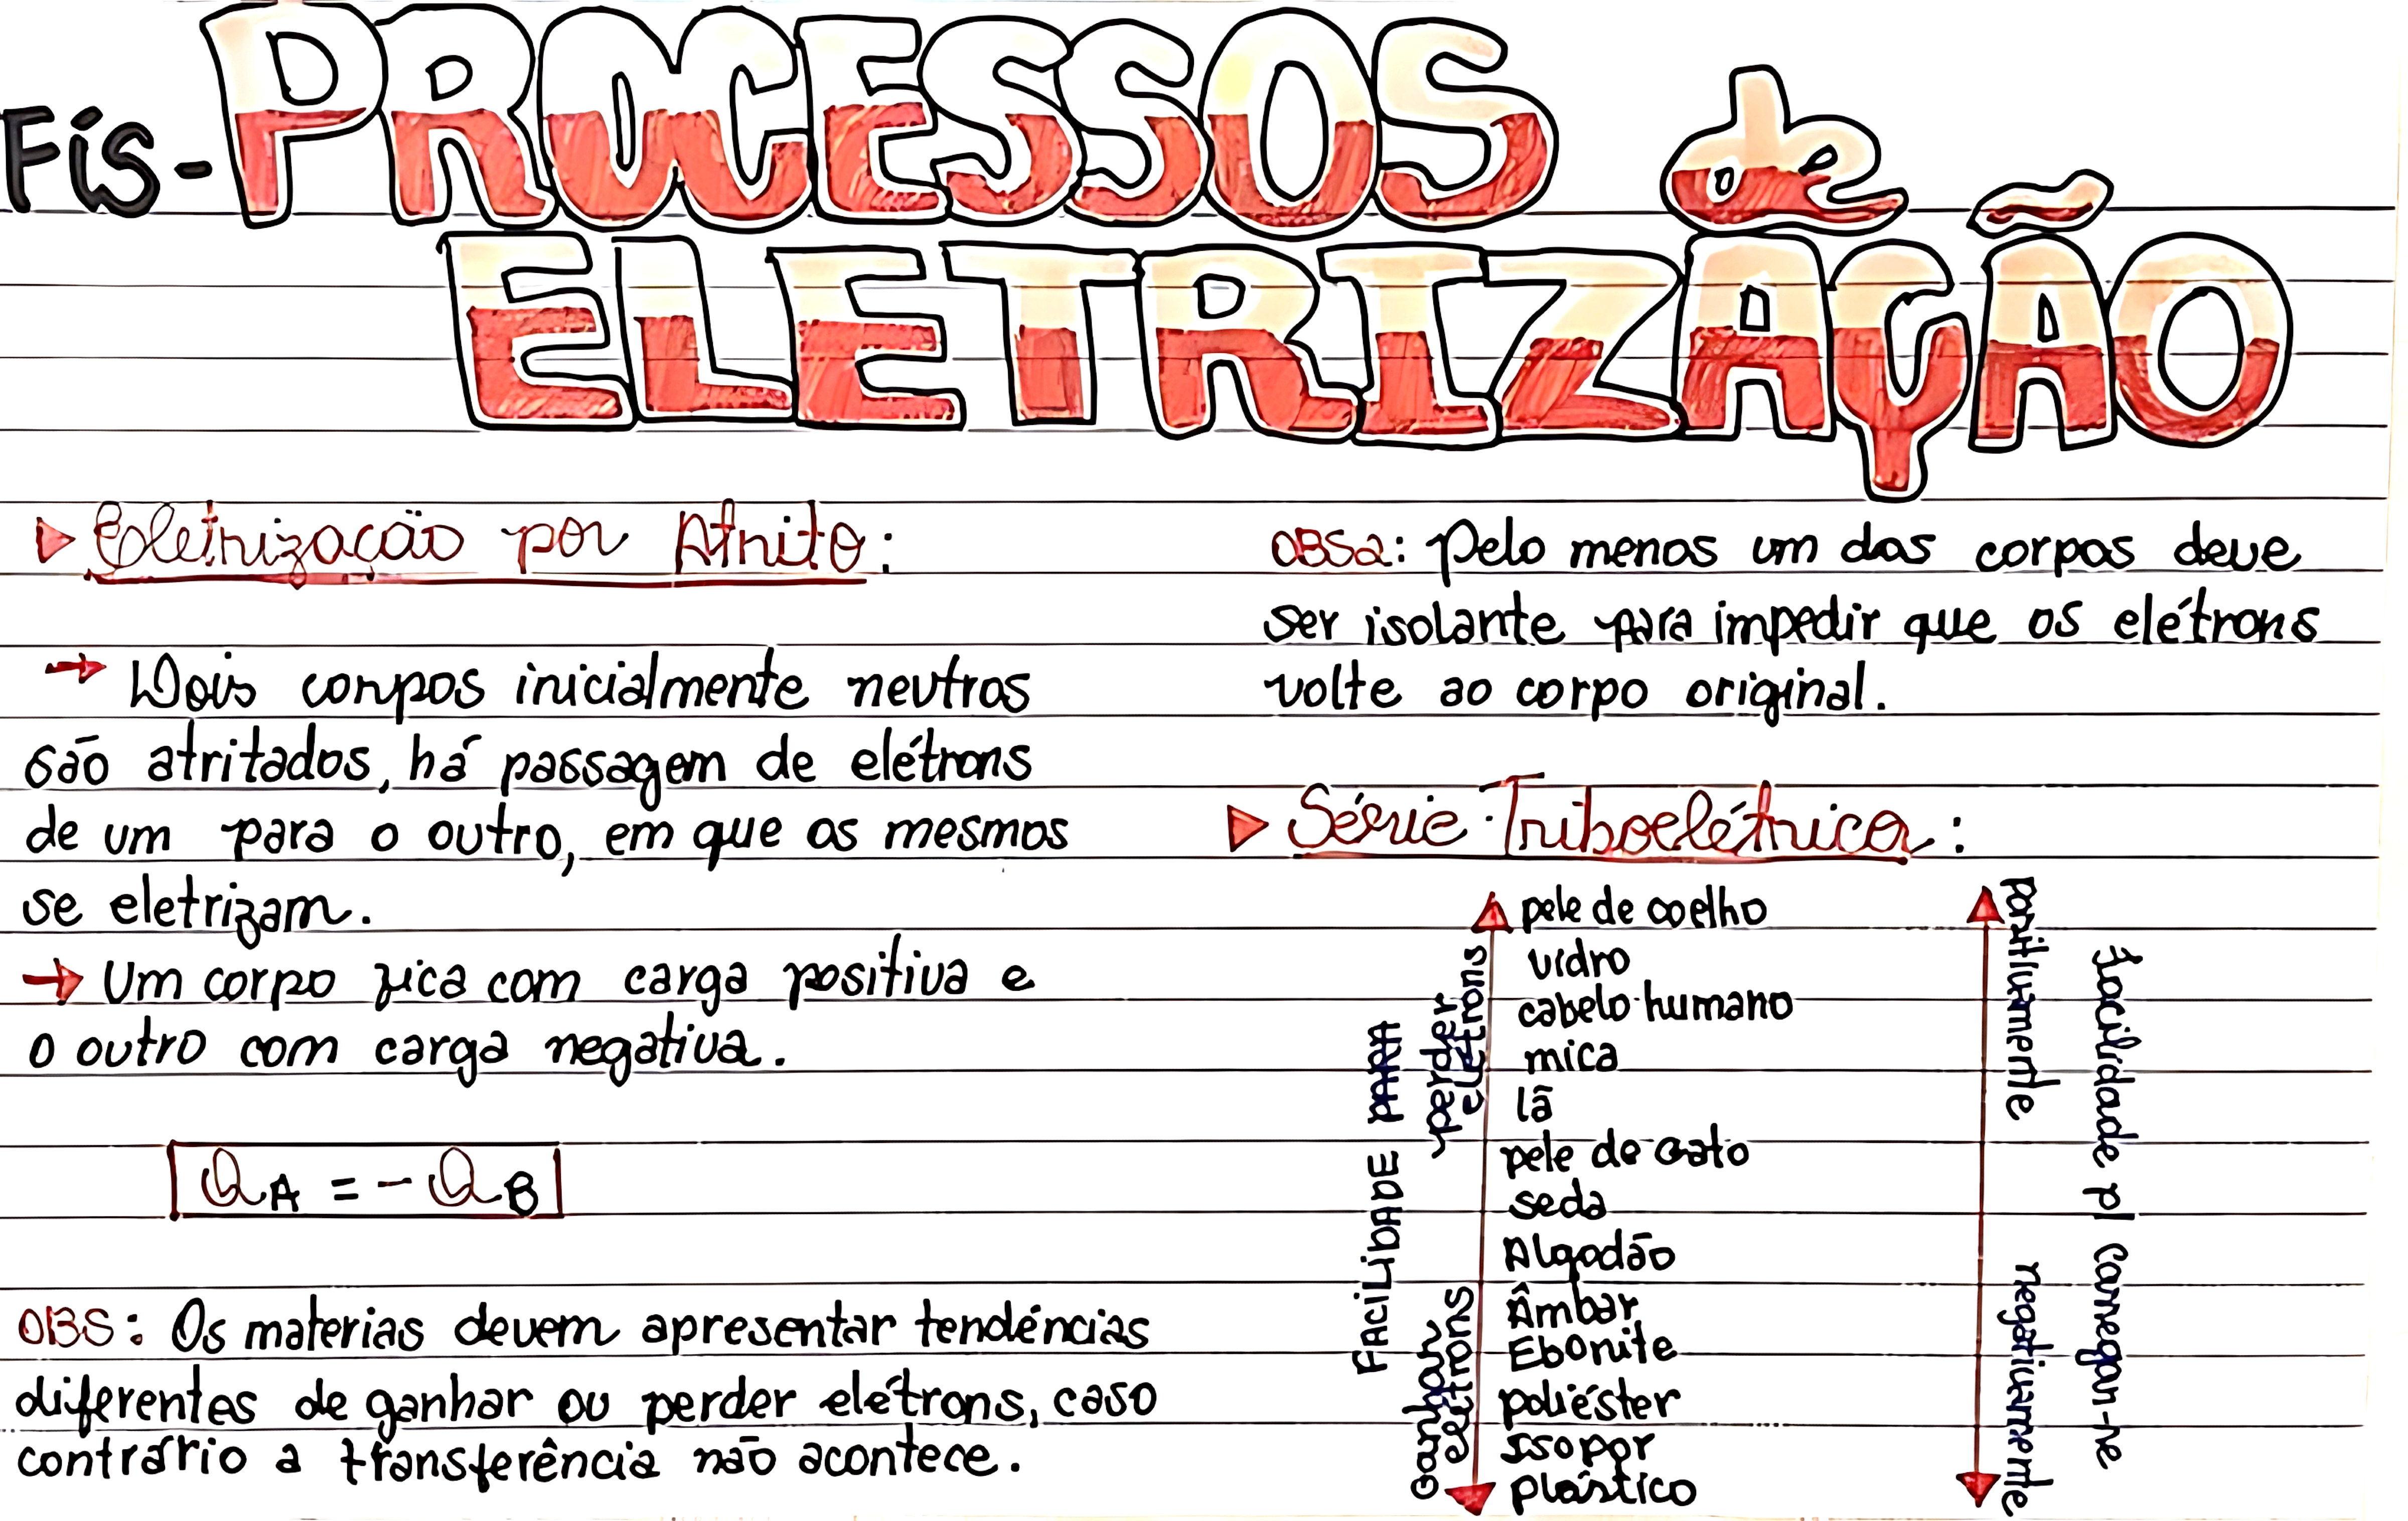 Fís- PROCESSOS de
ELETRIZAÇÃO
Eletrização por Atrito:
→ Dois corpos inicialmente neutros
são atritados, há passagem de elétrons
de um para o outro, em que os mesmos
se eletrizam.
→ Um corpo fica com carga positiva e
o outro com carga negativa.
QA = - QB
OBS: Os materias devem apresentar tendências
diferentes de ganhar ou perder elétrons, caso
contrário a transferência não acontece.
OBS2: Pelo menos um dos corpos deve
ser isolante para impedir que os elétrons
volte ao corpo original.
Série Triboelétrica:
FACILIDADE PARA
perder
elétrons
ganhar
elétrons
pele de coelho
vidro
cabelo humano
mica
lã
pele de gato
seda
Algodão
Âmbar
Ebonite
poliéster
Isopor
plástico
positivamente
negativamente
facilidade p/ carregar-se